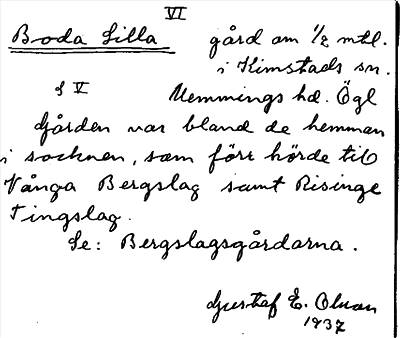 VI
Boda Lilla gård om 1/2 mtl.
i Kimstads sn.
S V Memmings hd. Ögl
Gården var bland de hemman
i socknen, som förr hörde till
Vånga Bergslag samt Risinge
Tingslag.
Se: Bergslagsgårdarna.
Gustaf E. Olson
1937